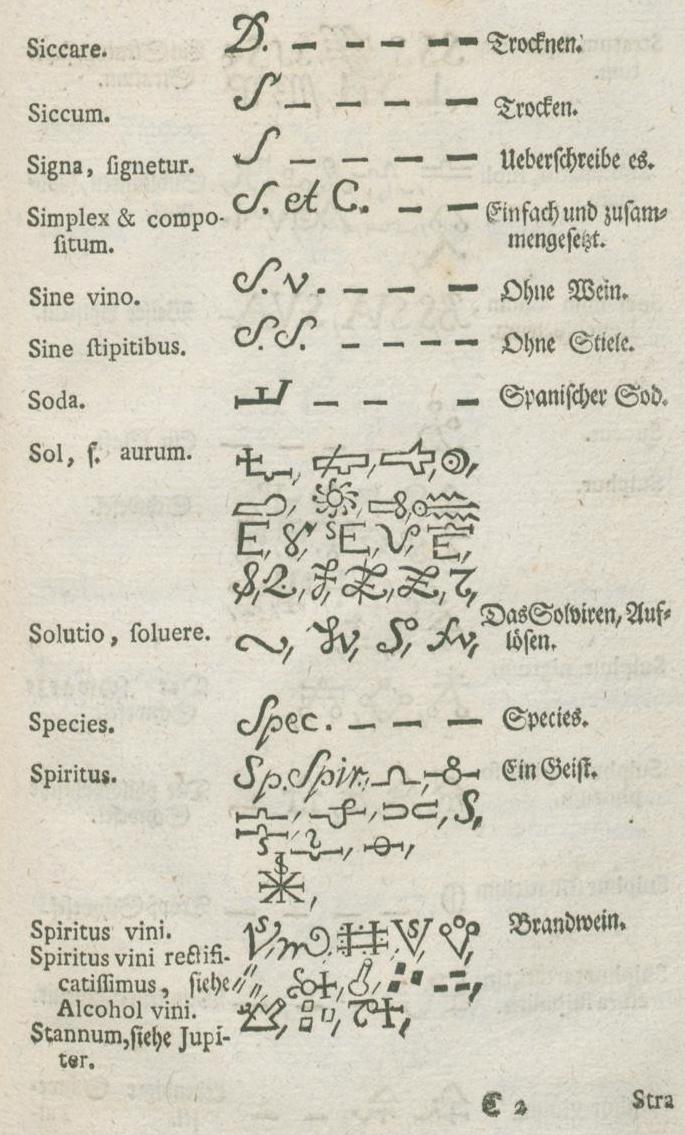 Siccare. D. — — — — — Trocknen.
Siccum. S — — — — Trocken.
Signa, ſignetur. S — — — — Ueberſchreibe es.
Simplex & compo- S. et C. — — Einfach und zuſam⸗
ſitum. mengeſetzt.
Sine vino. S. v. — — — — Ohne Wein.
Sine ſtipitibus. S. S. — — — — Ohne Stiele.
Soda. — — — Spaniſcher Sod.
Sol, ſ. aurum.
E, SE, E,
Solutio, ſoluere. Das Solviren, Auf⸗
löſen.
Species. Spec. — — — Species.
Spiritus. Sp. Spir. Ein Geiſt.
S,
Spiritus vini. Brandwein.
Spiritus vini rectifi-
catiſſimus, ſiehe
Alcohol vini.
Stannum, ſiehe Jupi-
ter.
C 2 Stra